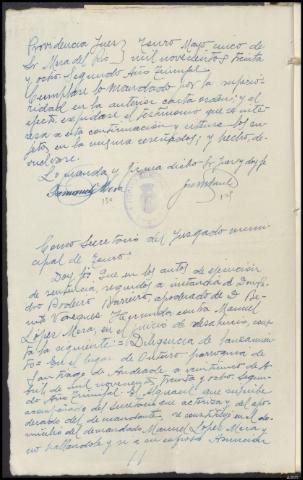 Providencia Juez } Teurro Mayo cinco de
Sr Mera del Río } mil novecientos treinta
y ocho Segundo Año Triunfal
Cumplase lo mandado por la superio-
ridad en la anterior carta orden; y al
efecto expidase el testimonio que se inte-
resa a esta continuación y
en la misma y hecho de-
vuelvase.
Lo manda y firma dicho Sr Juez doy fe
Raimundo Mera
Como Secretario del Juzgado muni-
cipal de
Doy fe: Que en los autos de ejecución
de sentencia, seguidos a instancia de
Rodero Barreiro, apoderado de D Be-
nito Vazquez contra Manuel
López Mera, en el juicio de desahucio, cons-
ta la siguiente: = Diligencia de lanzamien-
to = En el lugar de Outeiro parroquia de
Santiago de Andeade a veintinueve de
Abril de mil novecientos treinta y ocho Segun-
do Año Triunfal El Alguacil que suscribe
acompañado del Secretario que autoriza y del apo-
derado del demandante, se constituyó en el do-
micilio del demandado Manuel López Mera y
no hallandole y si a su esposa Asunción